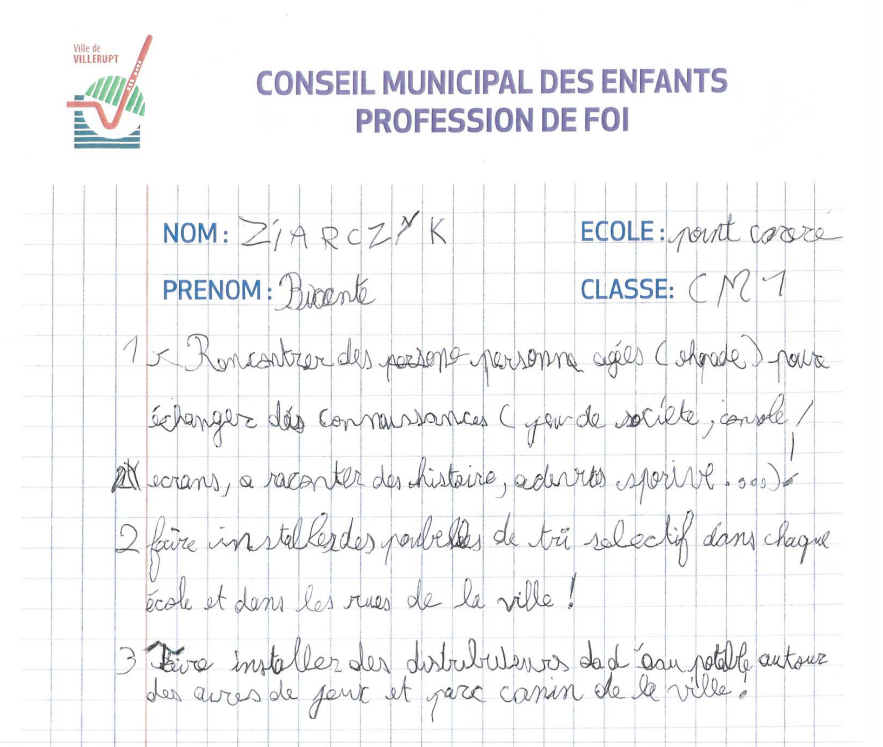 Ville de
VILLERUPT
CONSEIL MUNICIPAL DES ENFANTS
PROFESSION DE FOI
NOM : ZIARCZYK
ECOLE : point carré
PRENOM : Bixente
CLASSE : CM1
1 Rencontrer des personne personne agées (ehpade) pour
échanger des connaissances ( jeu de société, console /
ecrans, a raconter des histoire, sporive ....) !
2 faire installer des poubelles de tri selectif dans chaque
école et dans les rues de la ville !
3 Faire installer des distributeurs d'eau potable autour
des aires de jeux et parc canin de la ville !